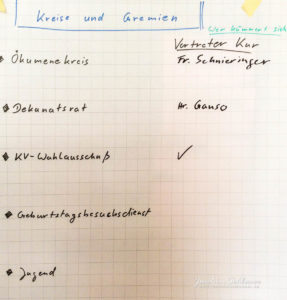 Kreise und Gremien
Wer kümmert sich
Vertreter
◆ Ökumenekreis Fr. Schnieringer
◆ Dekanatsrat Hr. Ganso
◆ KV-Wahlausschuß ✓
◆ Geburtstagsbesuchsdienst
◆ Jugend